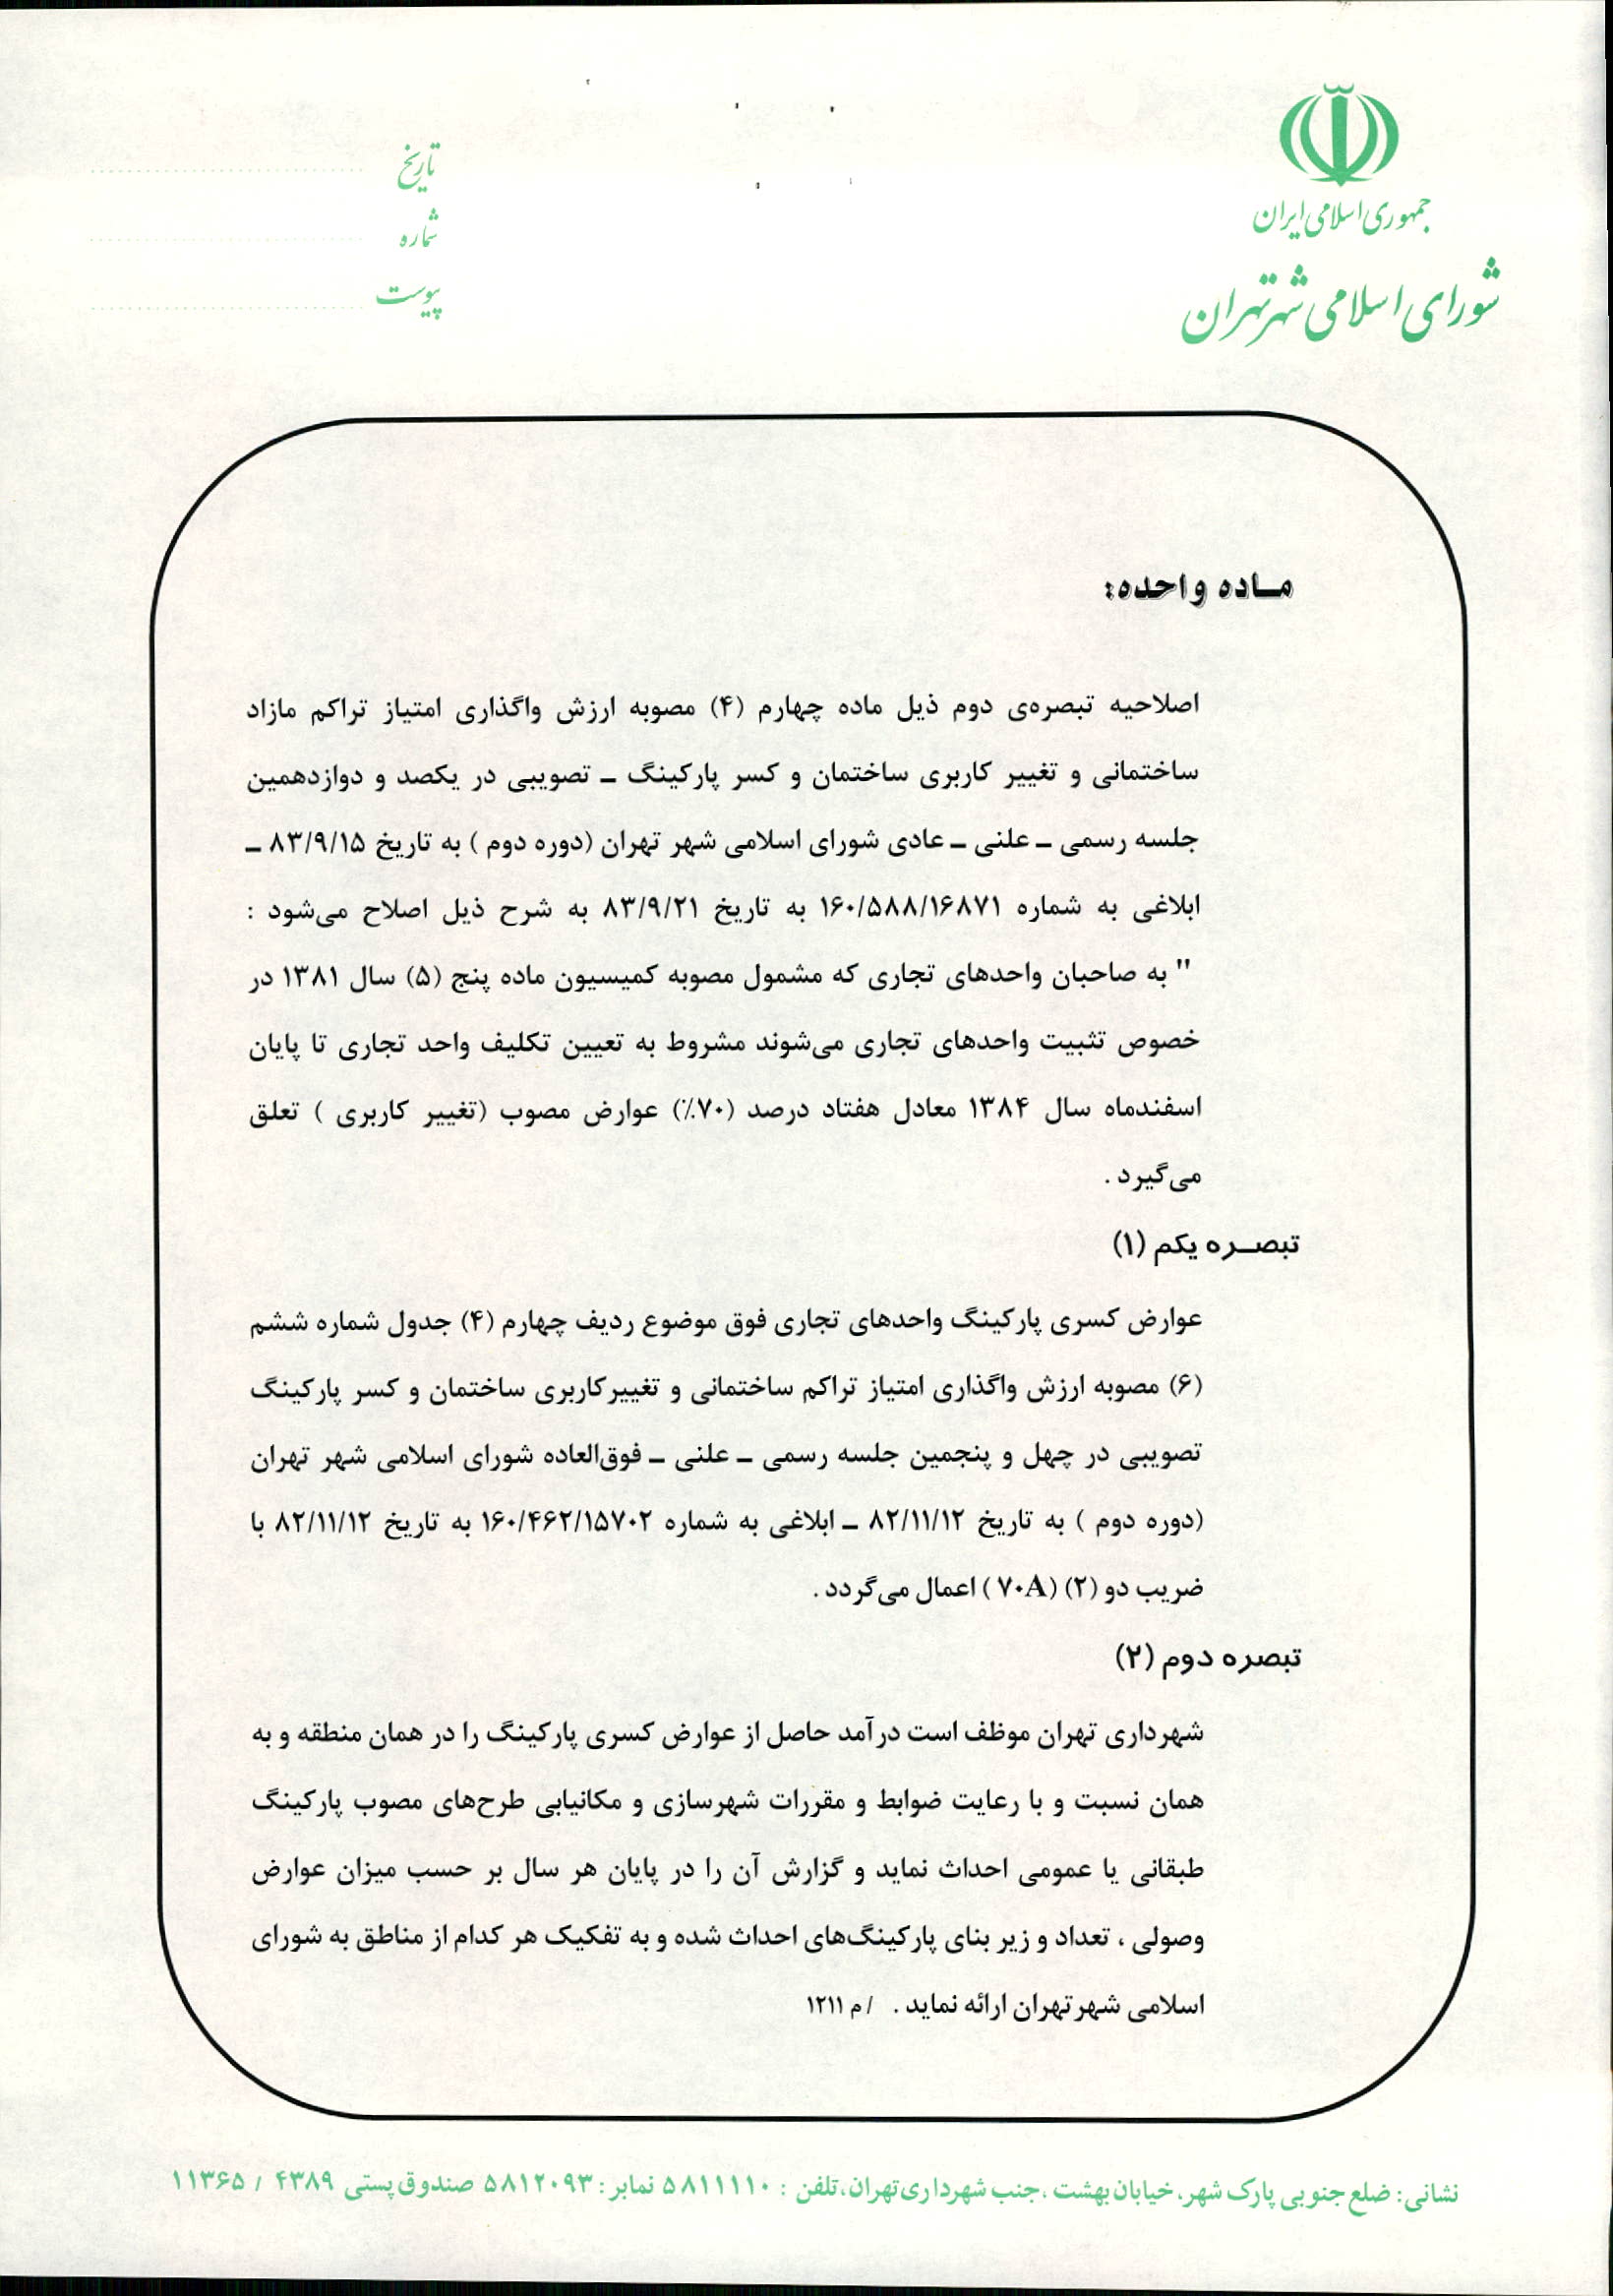 جمهوری اسلامی ایران
شورای اسلامی شهر تهران
تاریخ
شماره
پیوست
مـاده واحده:
اصلاحیه تبصره‌ی دوم ذیل ماده چهارم (۴) مصوبه ارزش واگذاری امتیاز تراکم مازاد
ساختمانی و تغییر کاربری ساختمان و کسر پارکینگ ـ تصویبی در یکصد و دوازدهمین
جلسه رسمی ـ علنی ـ عادی شورای اسلامی شهر تهران (دوره دوم ) به تاریخ ۸۳/۹/۱۵ ـ
ابلاغی به شماره ۱۶۰/۵۸۸/۱۶۸۷۱ به تاریخ ۸۳/۹/۲۱ به شرح ذیل اصلاح می‌شود :
" به صاحبان واحدهای تجاری که مشمول مصوبه کمیسیون ماده پنج (۵) سال ۱۳۸۱ در
خصوص تثبیت واحدهای تجاری می‌شوند مشروط به تعیین تکلیف واحد تجاری تا پایان
اسفندماه سال ۱۳۸۴ معادل هفتاد درصد (۷۰٪) عوارض مصوب (تغییر کاربری ) تعلق
می‌گیرد .
تبصــره یکم (۱)
عوارض کسری پارکینگ واحدهای تجاری فوق موضوع ردیف چهارم (۴) جدول شماره ششم
(۶) مصوبه ارزش واگذاری امتیاز تراکم ساختمانی و تغییرکاربری ساختمان و کسر پارکینگ
تصویبی در چهل و پنجمین جلسه رسمی ـ علنی ـ فوق‌العاده شورای اسلامی شهر تهران
(دوره دوم ) به تاریخ ۸۲/۱۱/۱۲ ـ ابلاغی به شماره ۱۶۰/۴۶۲/۱۵۷۰۲ به تاریخ ۸۲/۱۱/۱۲ با
ضریب دو (۲) (۷۰A ) اعمال می‌گردد .
تبصره دوم (۲)
شهرداری تهران موظف است درآمد حاصل از عوارض کسری پارکینگ را در همان منطقه و به
همان نسبت و با رعایت ضوابط و مقررات شهرسازی و مکانیابی طرح‌های مصوب پارکینگ
طبقانی یا عمومی احداث نماید و گزارش آن را در پایان هر سال بر حسب میزان عوارض
وصولی ، تعداد و زیر بنای پارکینگ‌های احداث شده و به تفکیک هر کدام از مناطق به شورای
اسلامی شهر تهران ارائه نماید . / م ۱۲۱۱
نشانی: ضلع جنوبی پارک شهر، خیابان بهشت ،جنب شهرداری تهران،تلفن : ۵۸۱۱۱۱۰ نمابر: ۵۸۱۲۰۹۳ صندوق پستی ۴۳۸۹ / ۱۱۳۶۵